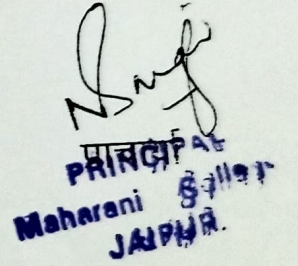 प्राचार्या
PRINCIPAL
Maharani College
JAIPUR.